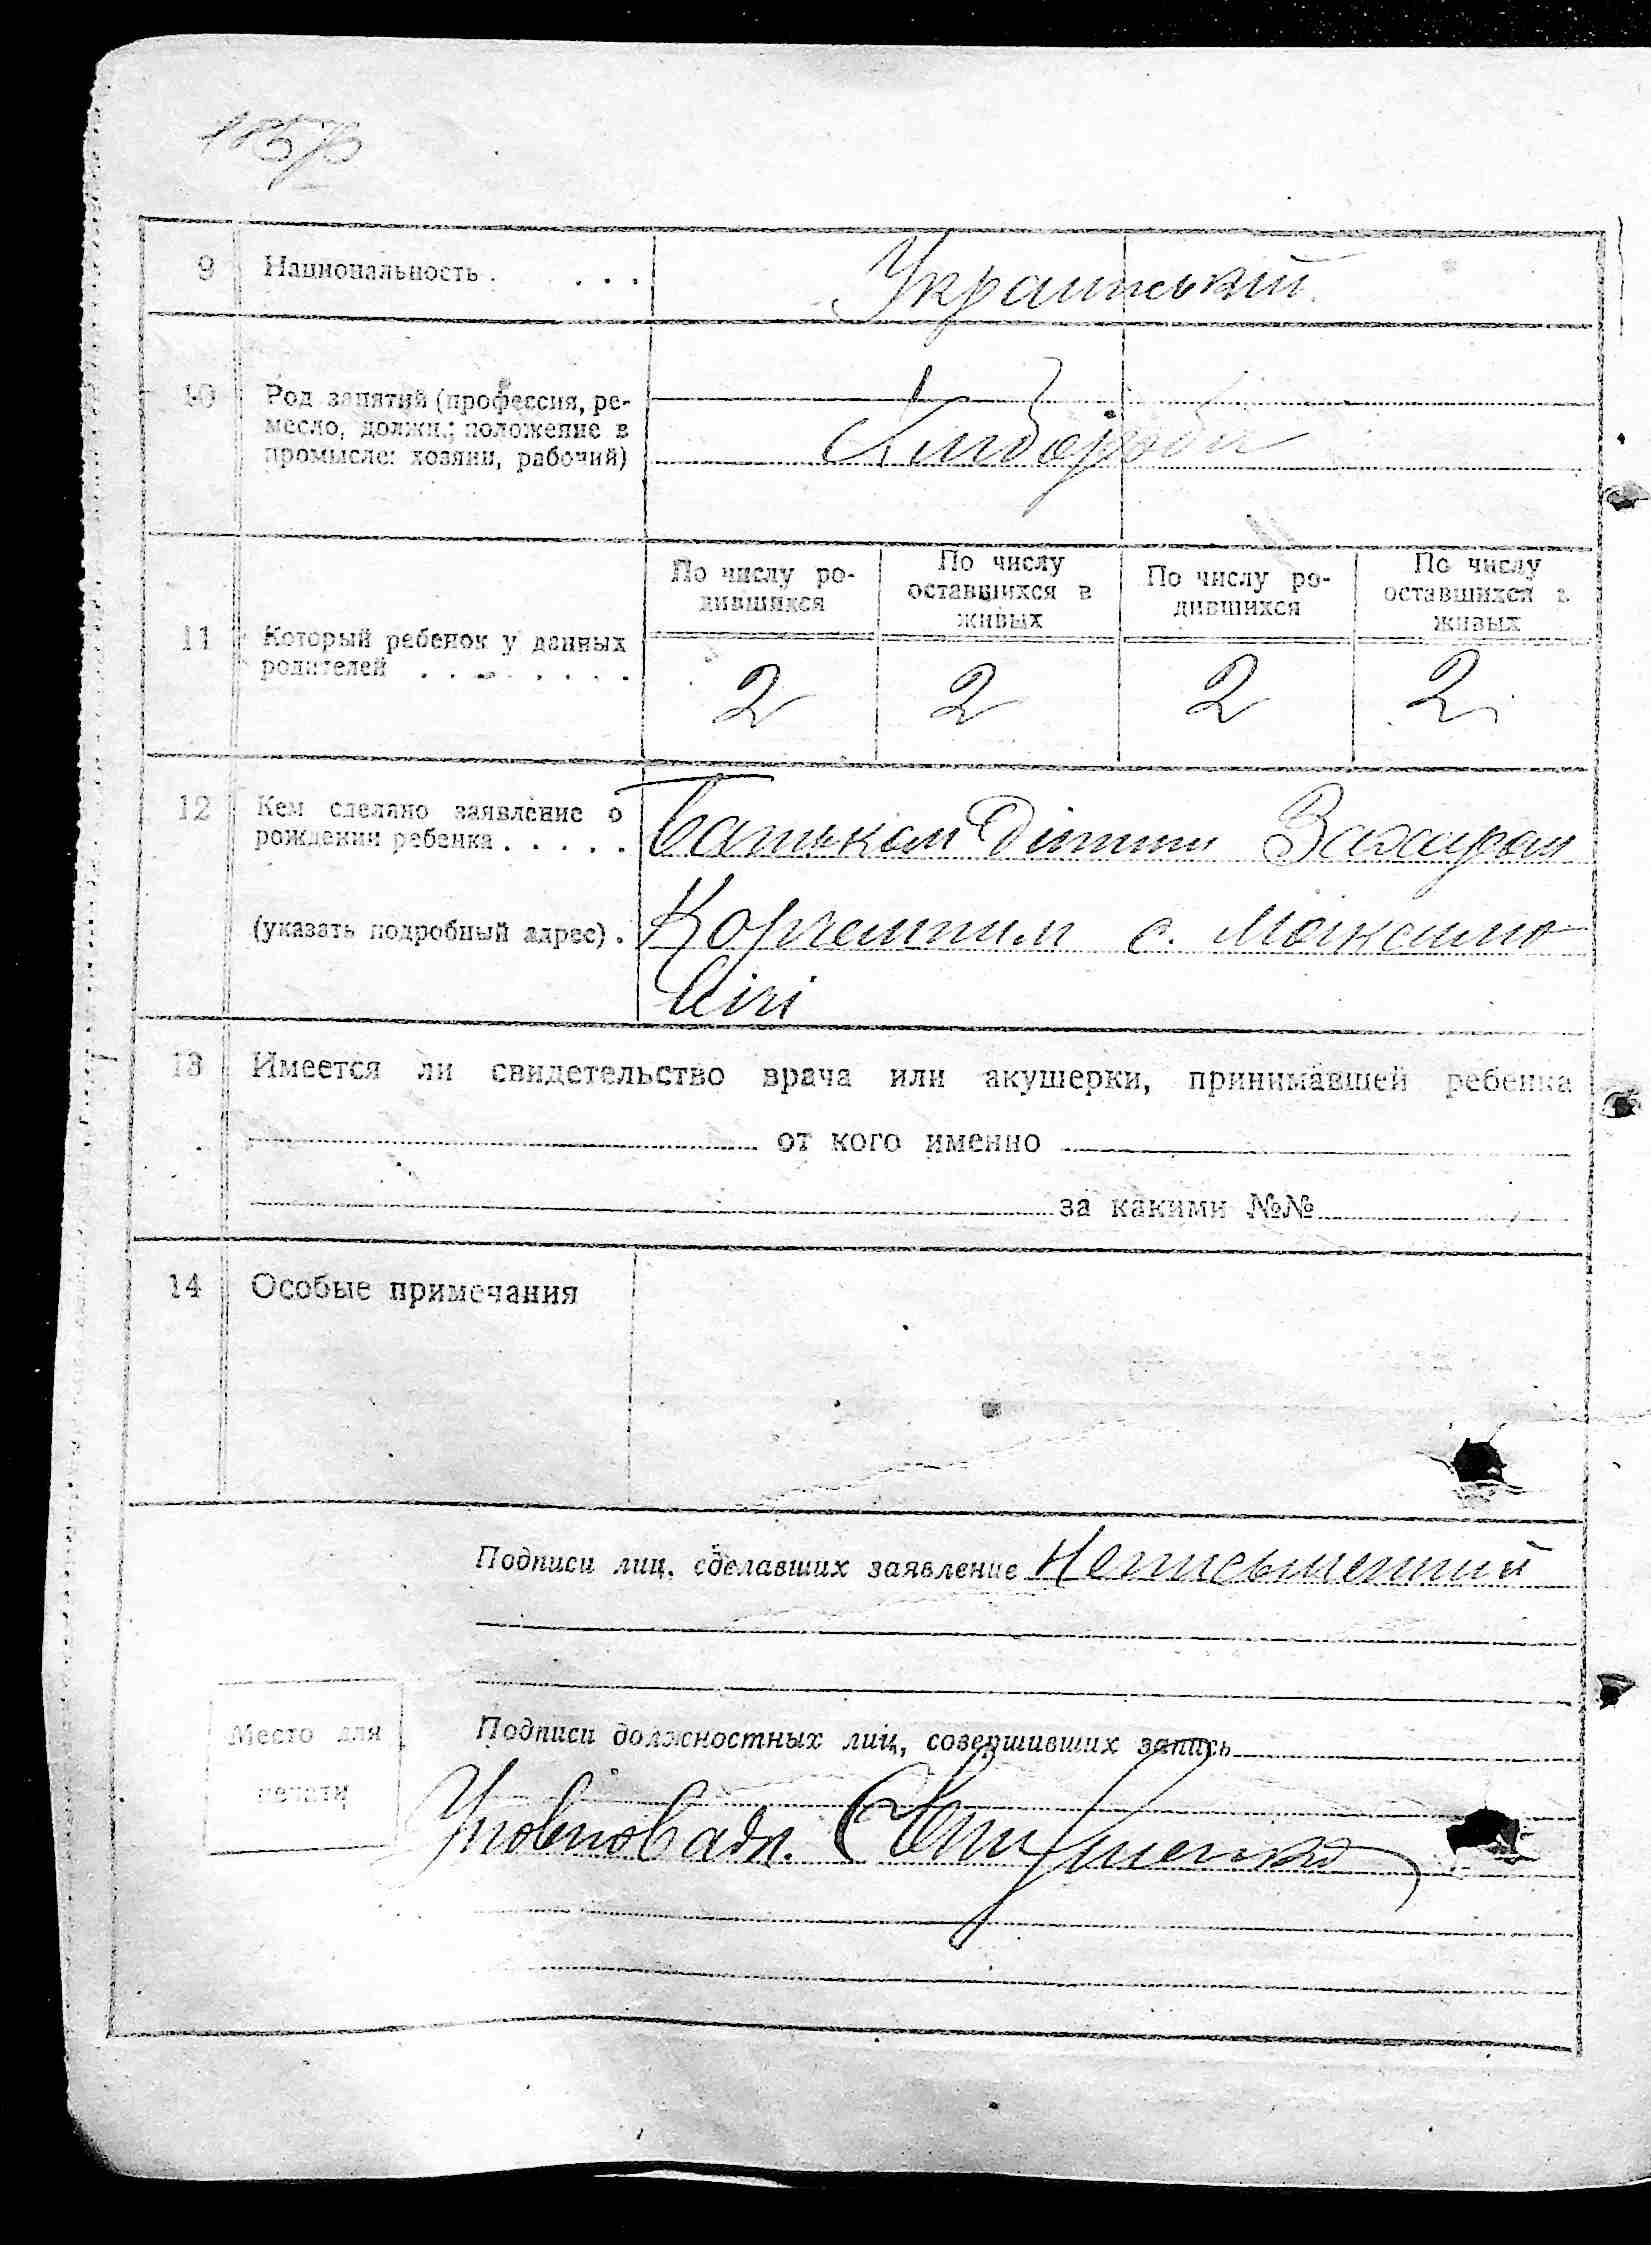 9 Национальность . . . . Український
10 Род занятий (профессия, ре-
месло, должн.; положение в
промысле: хозяин, рабочий)
Хлібороби
По числу ро-
дившихся
По числу
оставшихся в
живых
По числу ро-
дившихся
По числу
оставшихся в
живых
11 Который ребенок у данных
родителей . . . . . . . .
2 2 2 2
12 Кем сделано заявление о
рождении ребенка . . . . . Батьком дитини Захаром
(указать подробный адрес) . с.
13 Имеется ли свидетельство врача или акушерки, принимавшей ребенка
от кого именно
за какими №№
14 Особые примечания
Подписи лиц, сделавших заявление Неписьменний
Место для
печати
Подписи должностных лиц, совершивших запись